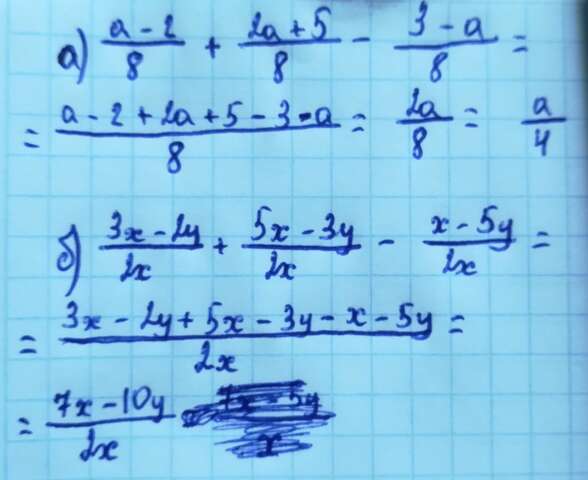 а) (a - 2)/8 + (2a + 5)/8 - (3 - a)/8 =
= (a - 2 + 2a + 5 - 3 - a)/8 = 2a/8 = a/4
б) (3x - 2y)/2x + (5x - 3y)/2x - (x - 5y)/2x =
= (3x - 2y + 5x - 3y - x - 5y)/2x =
= (7x - 10y)/2x